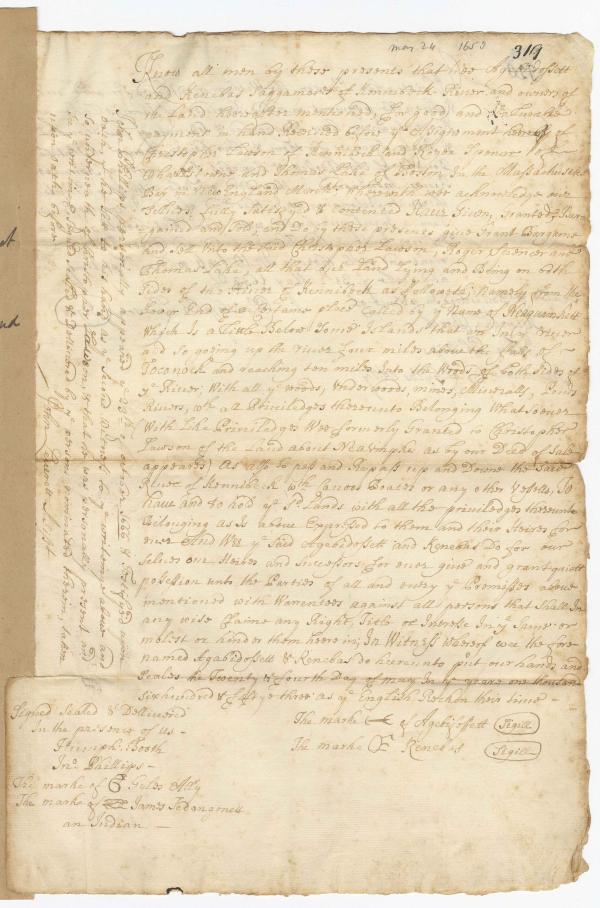 may 24 1653
319
Know all men by these presents that wee Agebidossett
and Kenebas Saggamors of Kennibeck River and owners of
the Land hereafter mentioned, for good and Valueable
payment in hand Received before ye Assignement hereof of
Christopher Lawson of Kennibeck and Roger Spencer of
and Thomas Lake of Boston In the Massachusetts
Bay in New England wee acknowledge our
Selves fully Satisfyed & contented Have Given, Granted Bar
gained and Sold, and Do by these presents give Grant Bargaine
and Sell Unto the said Christopher Lawson, Roger Spencer and
Thomas Lake, all that our Land Lying and Being on both
Sides of the River of Kennebeck as followeth; Namely from the
Lower End of a Certaine place Called by ye Name of Neaguamkett
Which Is a Little Below Some Islands that are In ye River
and so going up the river four miles above the falls of
Toconock and reaching ten miles Into the Woods of both Sides of
ye River; With all ye woods, Underwoods, mines, Mineralls,
Rivers, wth all Priviledges thereunto Belonging What soever
With Like Priviledges Wee formerly Granted to Christopher
Lawson of the Land about as by our Deed of Sale
appeares; As also to pass and Repass up and Downe the said
River of Kennebeck wth Canoos Boates or any other Vessells, To
have and to hold ye sd Lands with all the priviledges thereunto
Belonging as Is above Expressed to them and their Heires for
ever And Wee ye said Agebidossett and Kenebas Do for our
selves our Heires and Successors for ever give and grant quiett
possession unto the Parties of all and every ye Premisses above
mentioned with Warrantees against all persons that shall In
any wise Claime any Right, Title or Interest In ye Same or
molest or hinder them heere in; In Witness whereof wee the fore
named Agabidossett & Kenebas do hereunto put our hands and
seales the Twenty & fourth Day of may In ye yeare one thousand
six hundred & fifty three as ye English Reckon their time -
Signed Sealed & Dellivered
In the presence of us -
Humph: Booth
Jno Phillips -
The marke of Gyles
The marke of James
an Indian -
The marke of Agebidossett Sigill
The marke of Kenebas Sigill
John Phillips personally appeared ye 23th of 1666 & Testifyed upon
oath that hee Set to his hand as ye Second Witness to ye writeing above and
so underneath of Christopher Lawson & that hee was personally present and
saw ye same Signed Sealed & Dellivered by ye persons nominated therein, taken
upon oath before
John Leverett Assist